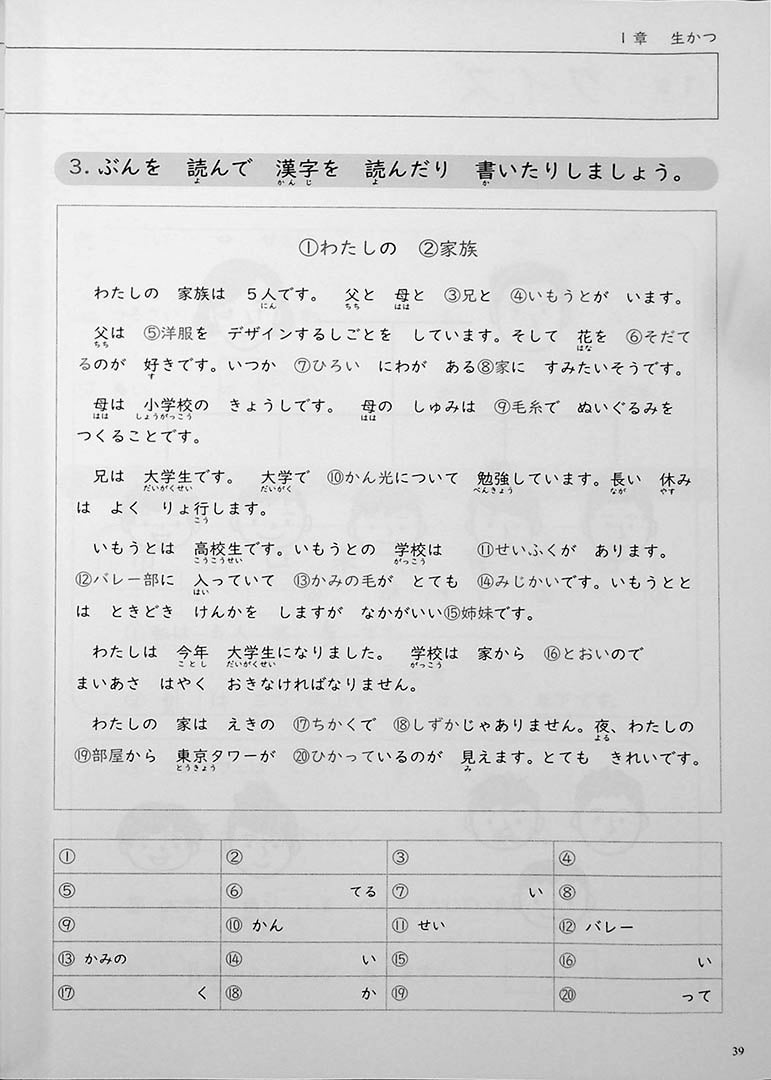 1章 生かつ
3. ぶんを 読んで 漢字を 読んだり 書いたりしましょう。
よ かんじ よ か
①わたしの ②家族
わたしの 家族は 5人です。 父と 母と ③兄と ④いもうとが います。
にん ちち はは
父は ⑤洋服を デザインするしごとを しています。そして 花を ⑥そだて
ちち はな
るのが 好きです。いつか ⑦ひろい にわが ある⑧家に すみたいそうです。
す
母は 小学校の きょうしです。 母の しゅみは ⑨毛糸で ぬいぐるみを
はは しょうがっこう はは
つくることです。
兄は 大学生です。 大学で ⑩かん光について 勉強しています。長い 休み
だいがくせい だいがく べんきょう なが やす
は よく りょ行します。
こう
いもうとは 高校生です。いもうとの 学校は ⑪せいふくが あります。
こうこうせい がっこう
⑫バレー部に 入っていて ⑬かみの毛が とても ⑭みじかいです。いもうとと
はい
は ときどき けんかを しますが なかがいい⑮姉妹です。
わたしは 今年 大学生になりました。 学校は 家から ⑯とおいので
ことし だいがくせい がっこう
まいあさ はやく おきなければなりません。
わたしの 家は えきの ⑰ちかくで ⑱しずかじゃありません。夜、わたしの
よる
⑲部屋から 東京タワーが ⑳ひかっているのが 見えます。とても きれいです。
とうきょう み
① ② ③ ④
⑤ ⑥ てる ⑦ い ⑧
⑨ ⑩ かん ⑪ せい ⑫ バレー
⑬ かみの ⑭ い ⑮ ⑯ い
⑰ く ⑱ か ⑲ ⑳ って
39